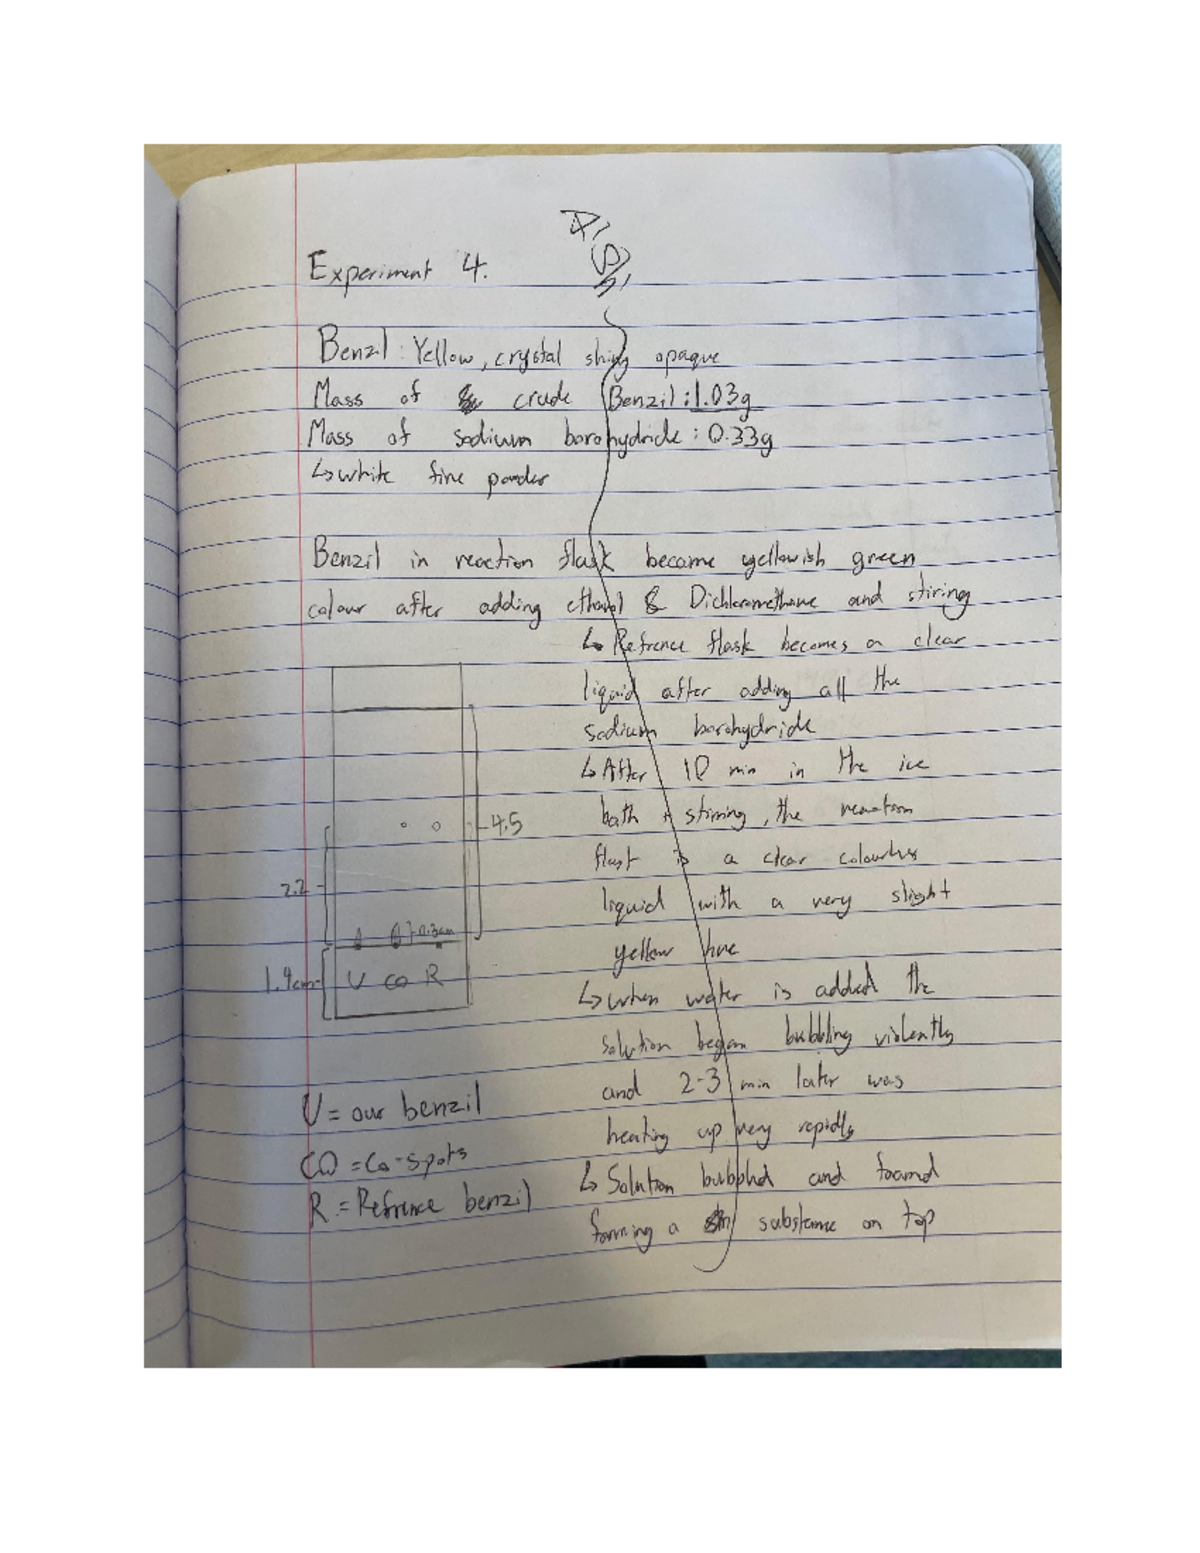 Experiment 4.
Benzil : Yellow, crystal shiny opaque
Mass of crude Benzil : 1.03g
Mass of sodium borohydride : 0.33g
↳ white fine powder
Benzil in reaction flask became yellowish green
colour after adding ethanol & Dichloromethane and stiring
↳ Refrence flask becomes a clear
liquid after adding all the
sodium borohydride
↳ After 10 min in the ice
bath + stirring, the reaction
is a clear colourless
liquid with a very slight
yellow hue
↳ when water is added the
solution began bubbling violently
and 2-3 min later was
heating up very rapidly
↳ Solution bubbled and foamd
forming a substance on top
4.5
2.2
0.3cm
1.4cm
U CO R
U = our benzil
CO = Co-spots
R = Refrence benzil